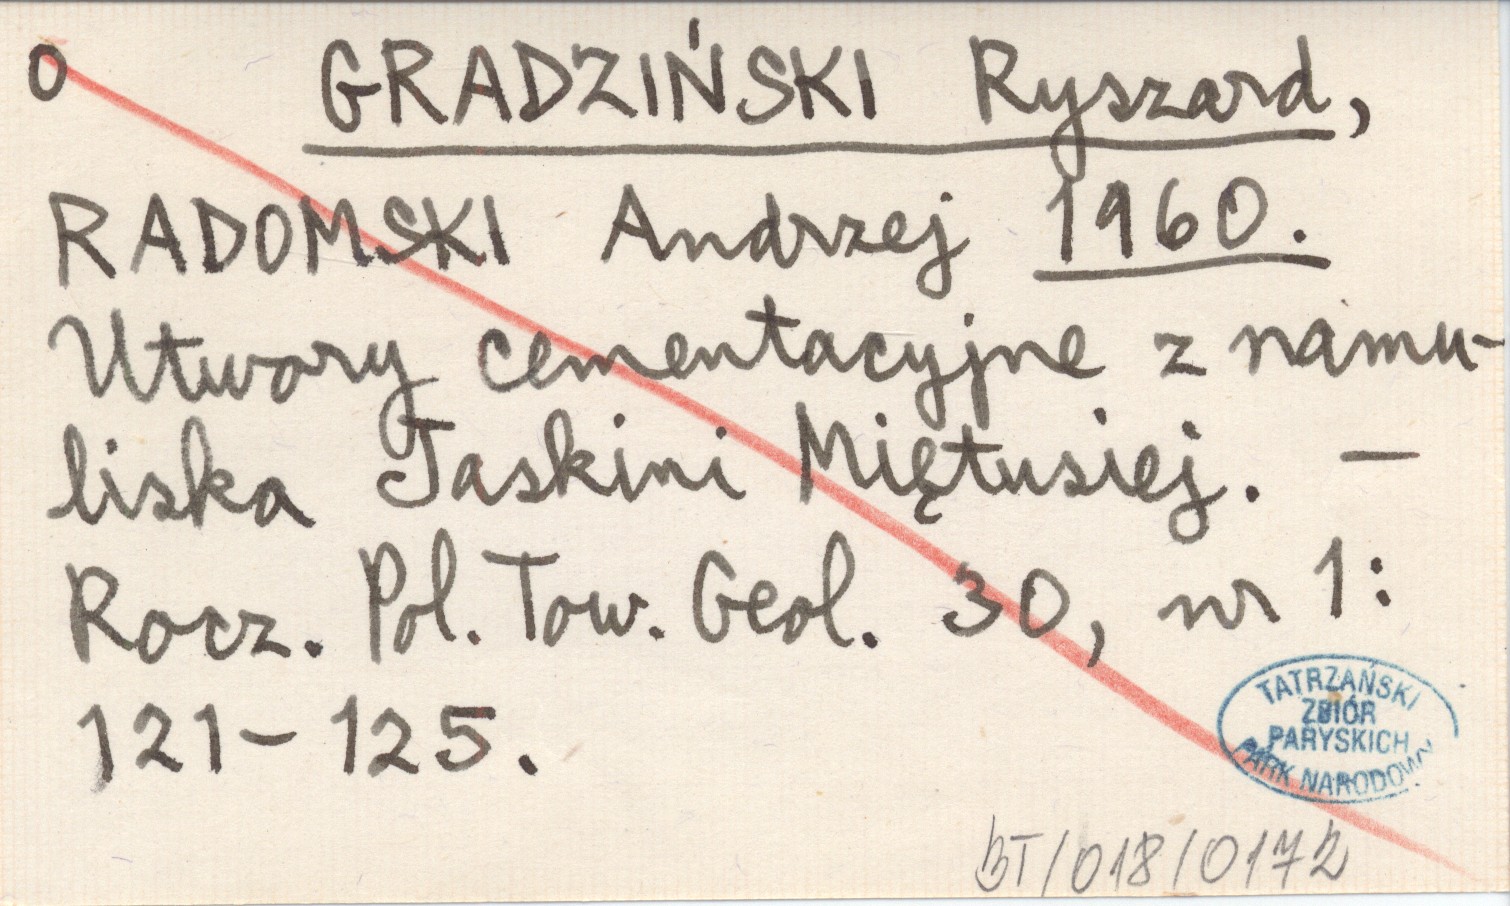 O GRADZIŃSKI Ryszard,
RADOMSKI Andrzej 1960.
Utwory cementacyjne z namu-
liska Jaskini Miętusiej. —
Rocz. Pol. Tow. Geol. 30, nr 1:
121-125.
TATRZAŃSKI
ZBIÓR
PARYSKICH
PARK NARODOWY
BT/018/0172